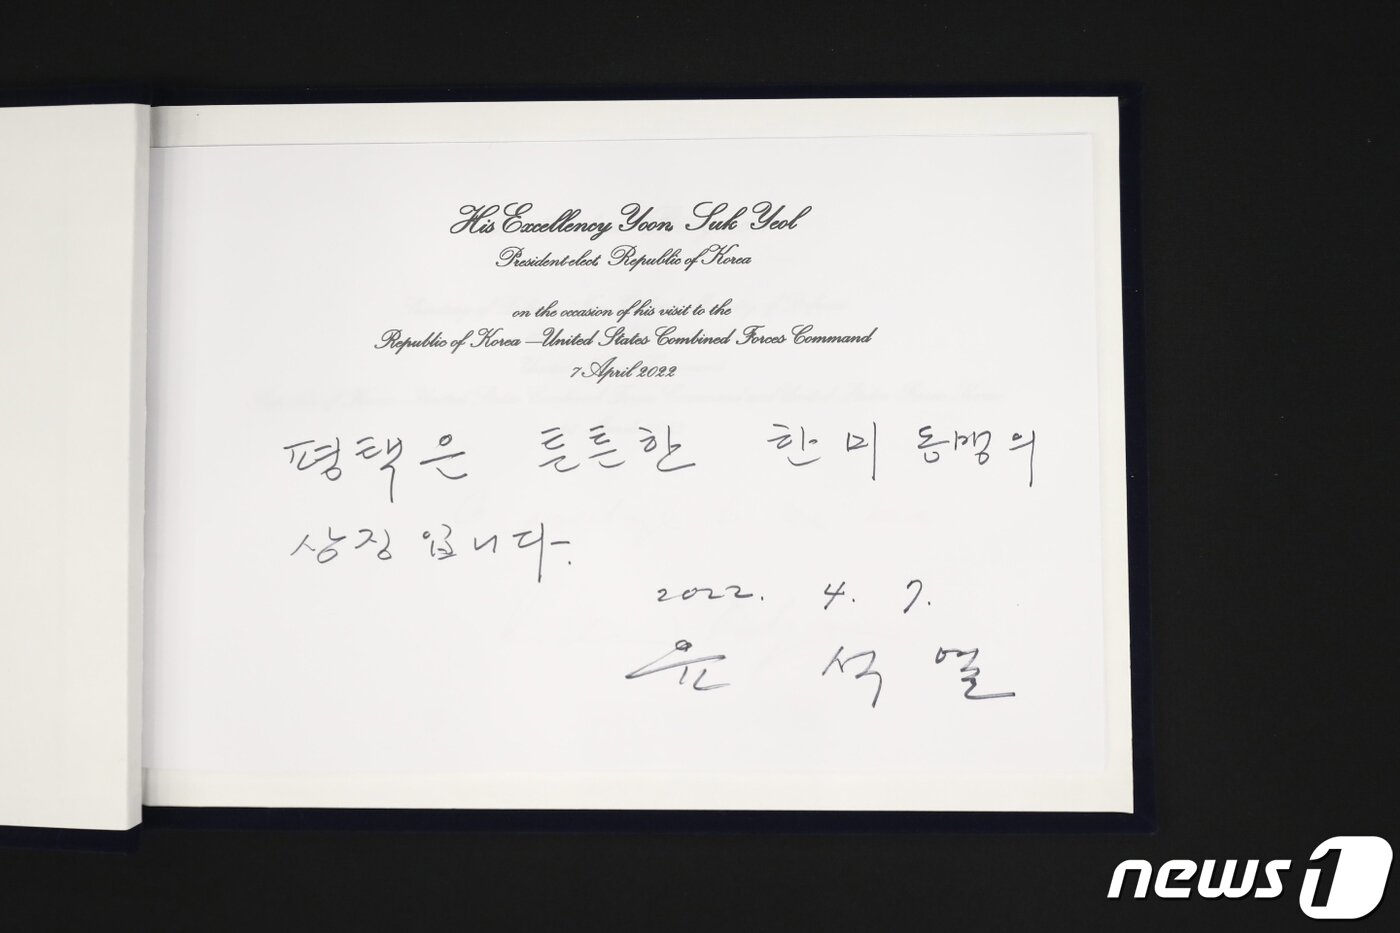 His Excellency Yoon, Suk Yeol
President-elect, Republic of Korea
on the occasion of his visit to the
Republic of Korea – United States Combined Forces Command
7 April 2022
평택은 튼튼한 한미동맹의
상징입니다.
2022. 4. 7.
윤 석 열
news1